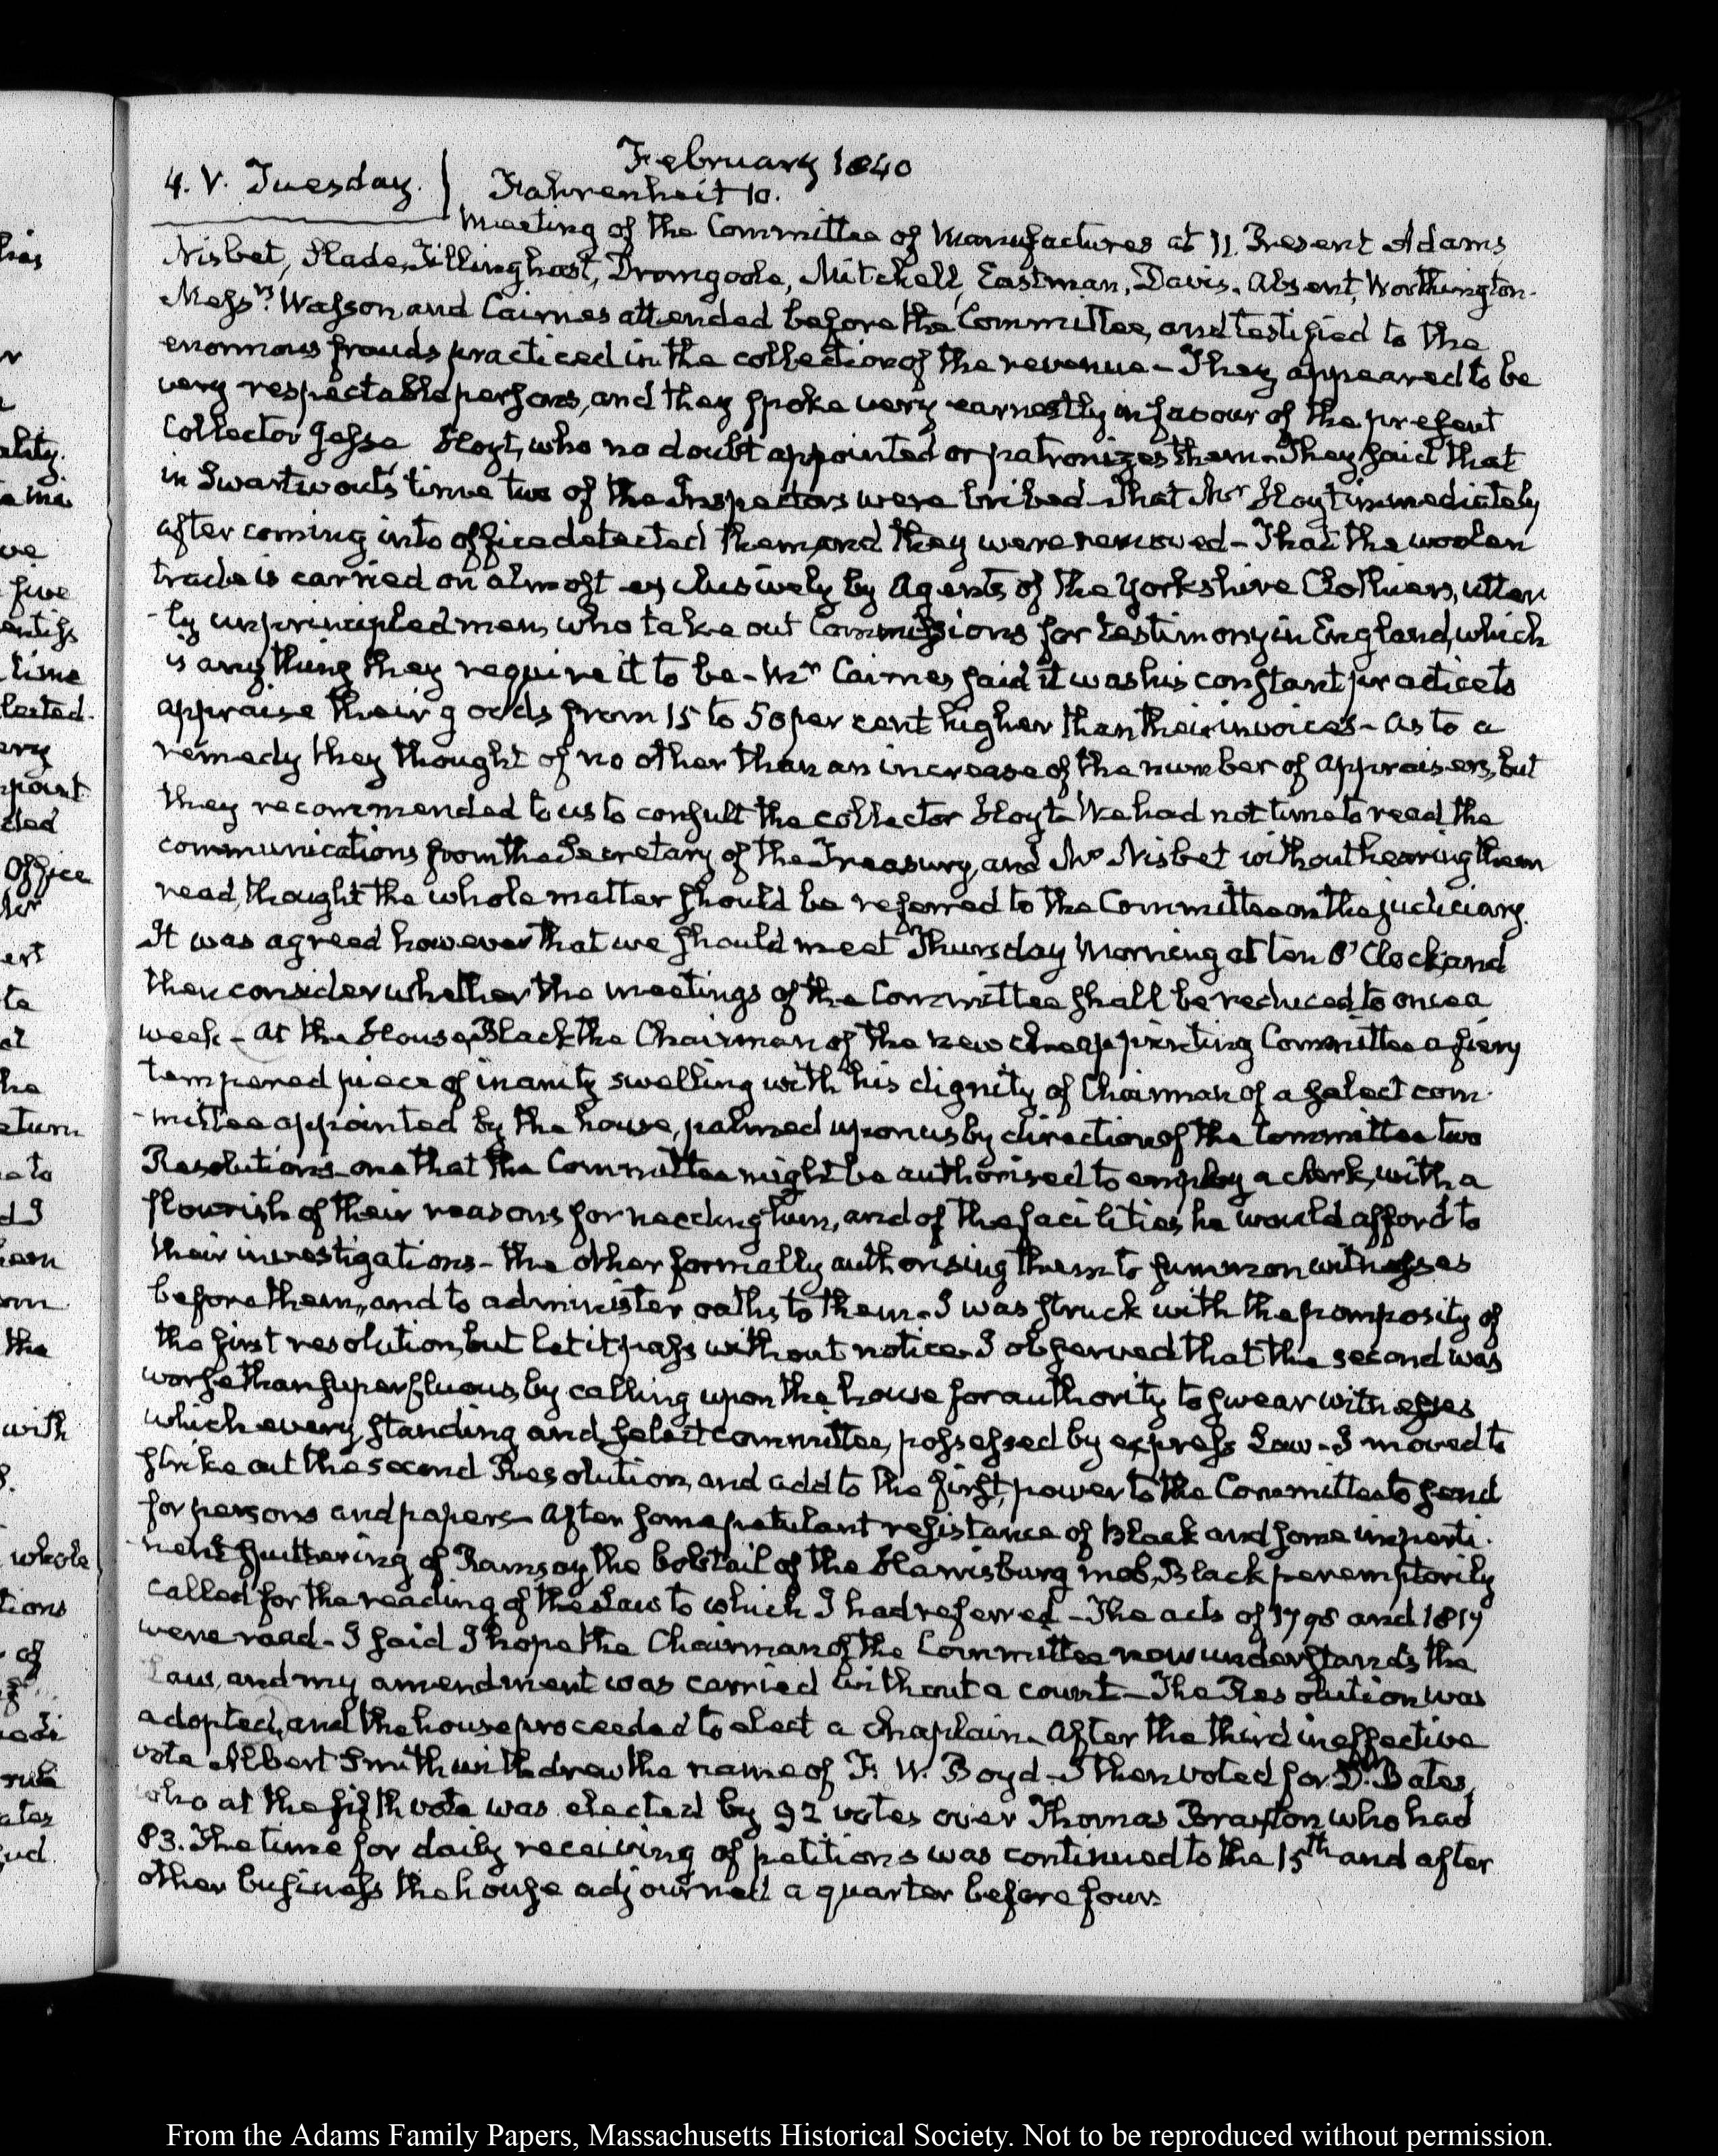 February 1840
4. V. Tuesday. Fahrenheit 10.
Meeting of the Committee of Manufactures at 11. Present Adams,
Nisbet, Slade, Tillinghast, Dromgoole, Mitchell, Eastman, Davis. Absent, Worthington.
Messrs. Wasson and Cairnes attended before the Committee, and testified to the
enormous frauds practiced in the collection of the revenue - They appeared to be
very respectable persons, and they spoke very earnestly in favour of the present
Collector Jesse Hoyt, who no doubt appointed or patronizes them. They said that
in Swartwout's time two of the Inspectors were bribed - That Mr. Hoyt immediately
after coming into office detected them, and they were removed - That the woolen
trade is carried on almost exclusively by Agents of the Yorkshire Clothiers, utter
-ly unprincipled men, who take out Commissions for testimony in England, which
is any thing they require it to be - Mr. Cairnes said it was his constant practice to
appraise their goods from 15 to 50 per cent higher than their invoices - As to a
remedy they thought of no other than an increase of the number of appraisers, but
they recommended to us to consult the collector Hoyt. We had not time to read the
communications from the Secretary of the Treasury, and Mr. Nisbet without hearing them
read, thought the whole matter should be referred to the Committee on the judiciary.
It was agreed however that we should meet on Thursday Morning at ten O'Clock and
then consider whether the meetings of the Committee shall be reduced to once a
week - At the House, Black the Chairman of the new cheap printing Committee a fiery
tempered piece of inanity swelling with his dignity of Chairman of a select com-
-mittee appointed by the house, palmed upon us by direction of the Committee two
Resolutions - one that the Committee might be authorised to employ a clerk, with a
flourish of their reasons for needing him, and of the facilities he would afford to
their investigations - the other formally authorising them to summon witnesses
before them, and to administer oaths to them. I was struck with the pomposity of
the first resolution, but let it pass without notice. I observed that the second was
worse than superfluous, by calling upon the house for authority to swear witnesses
which every standing and select committee, possessed by express Law - I moved to
strike out the second Resolution, and add to the first, power to the Committee to send
for persons and papers. After some petulant resistance of Black and some imperti-
-nent sputtering of Ramsay the bobtail of the Harrisburg mob, Black peremptorily
called for the reading of the Law to which I had referred - The acts of 1798 and 1817
were read - I said I hope the Chairman of the Committee now understands the
Law, and my amendment was carried without a count - The Resolution was
adopted, and the house proceeded to elect a Chaplain. After the third ineffective
vote Albert Smith withdrew the name of F. W. Boyd - I then voted for Dr. Bates,
who at the fifth vote was elected by 92 votes over Thomas Braxton who had
83. The time for daily receiving of petitions was continued to the 15th and after
other business the house adjourned a quarter before four.
From the Adams Family Papers, Massachusetts Historical Society. Not to be reproduced without permission.